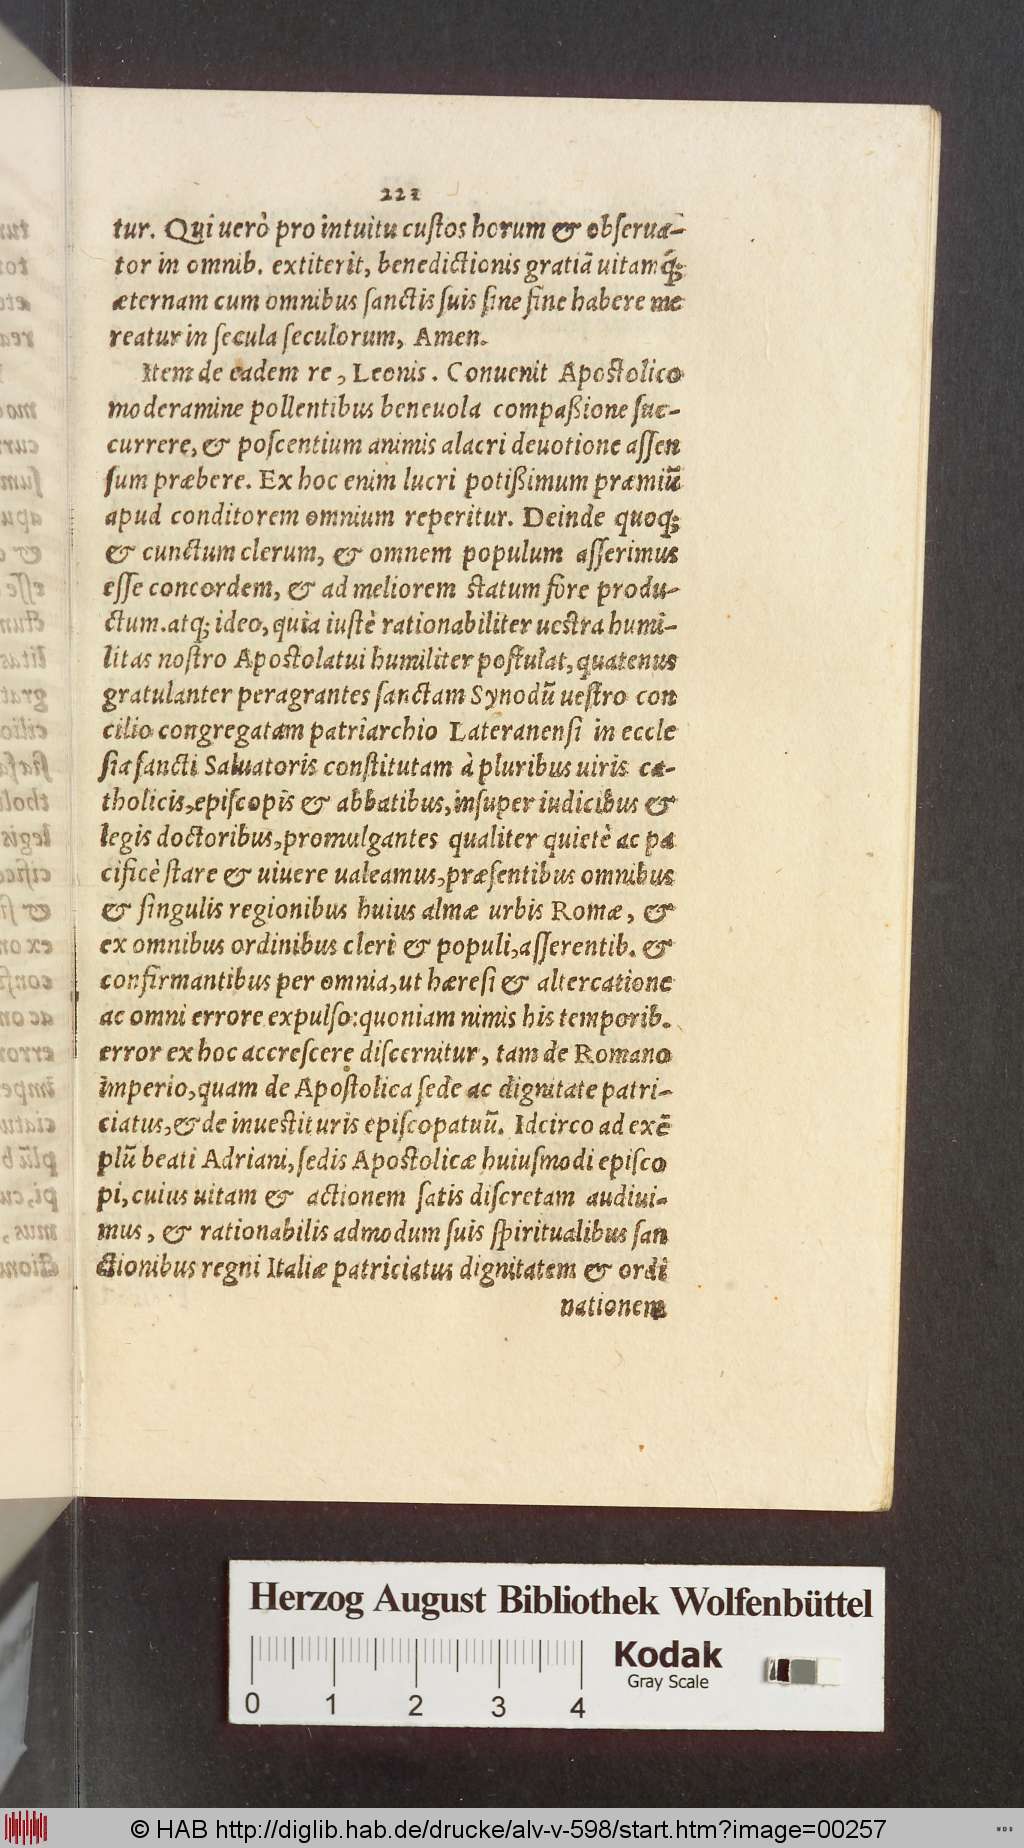 221
tur. Qui uerò pro intuitu custos horum & obserua-
tor in omnib. extiterit, benedictionis gratiã uitamq́;
æternam cum omnibus sanctis suis sine fine habere me
reatur in secula seculorum, Amen.
Item de eadem re, Leonis. Conuenit Apostolico
moderamine pollentibus beneuola compaßione suc-
currere, & poscentium animis alacri deuotione assen
sum præbere. Ex hoc enim lucri potißimum præmiũ
apud conditorem omnium reperitur. Deinde quoq;
& cunctum clerum, & omnem populum asserimus
esse concordem, & ad meliorem statum fore produ-
ctum. atq; ideo, quia iustè rationabiliter uestra humi-
litas nostro Apostolatui humiliter postulat, quatenus
gratulanter peragrantes sanctam Synodũ uestro con
cilio congregatam patriarchio Lateranensi in eccle
sia sancti Saluatoris constitutam à pluribus uiris ca-
tholicis, episcopis & abbatibus, insuper iudicibus &
legis doctoribus, promulgantes qualiter quietè ac pa
cificè stare & uiuere ualeamus, præsentibus omnibus
& singulis regionibus huius almæ urbis Romæ, &
ex omnibus ordinibus cleri & populi, asserentib. &
confirmantibus per omnia, ut hæresi & altercatione
ac omni errore expulso: quoniam nimis his temporib.
error ex hoc accrescere discernitur, tam de Romano
imperio, quam de Apostolica sede ac dignitate patri-
ciatus, & de inuestituris episcopatuũ. Idcirco ad exẽ
plũ beati Adriani, sedis Apostolicæ huiusmodi episco
pi, cuius uitam & actionem satis discretam audiui-
mus, & rationabilis admodum suis spiritualibus san
ctionibus regni Italiæ patriciatus dignitatem & ordi
nationem
Herzog August Bibliothek Wolfenbüttel
Kodak
Gray Scale
0 1 2 3 4
© HAB http://diglib.hab.de/drucke/alv-v-598/start.htm?image=00257